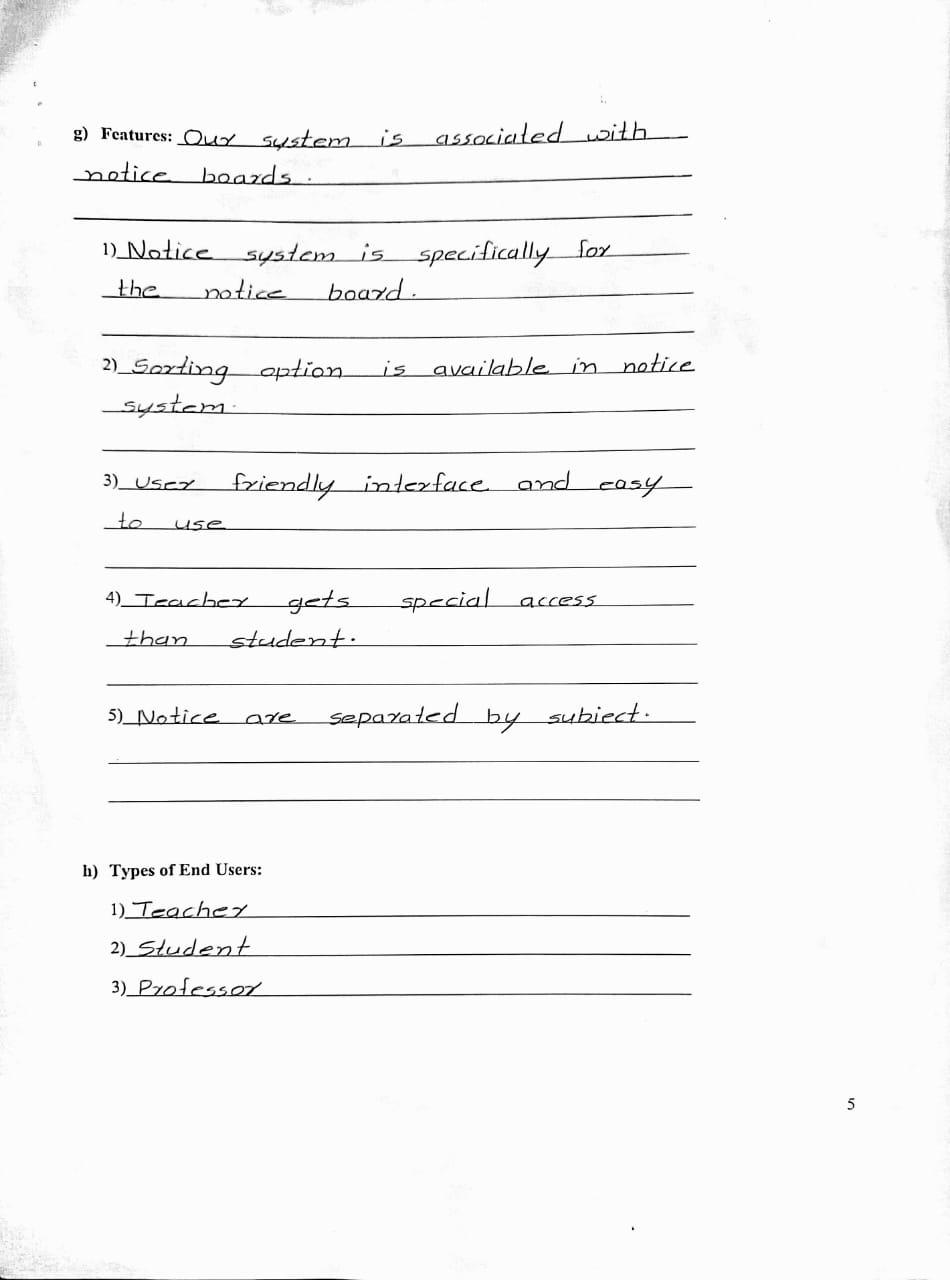 g) Features: Our system is associated with
notice boards.
1) Notice system is specifically for
the notice board.
2) Sorting option is available in notice
system.
3) User friendly interface and easy
to use
4) Teacher gets special access
than student.
5) Notice are separated by subject.
h) Types of End Users:
1) Teacher
2) Student
3) Professor
5